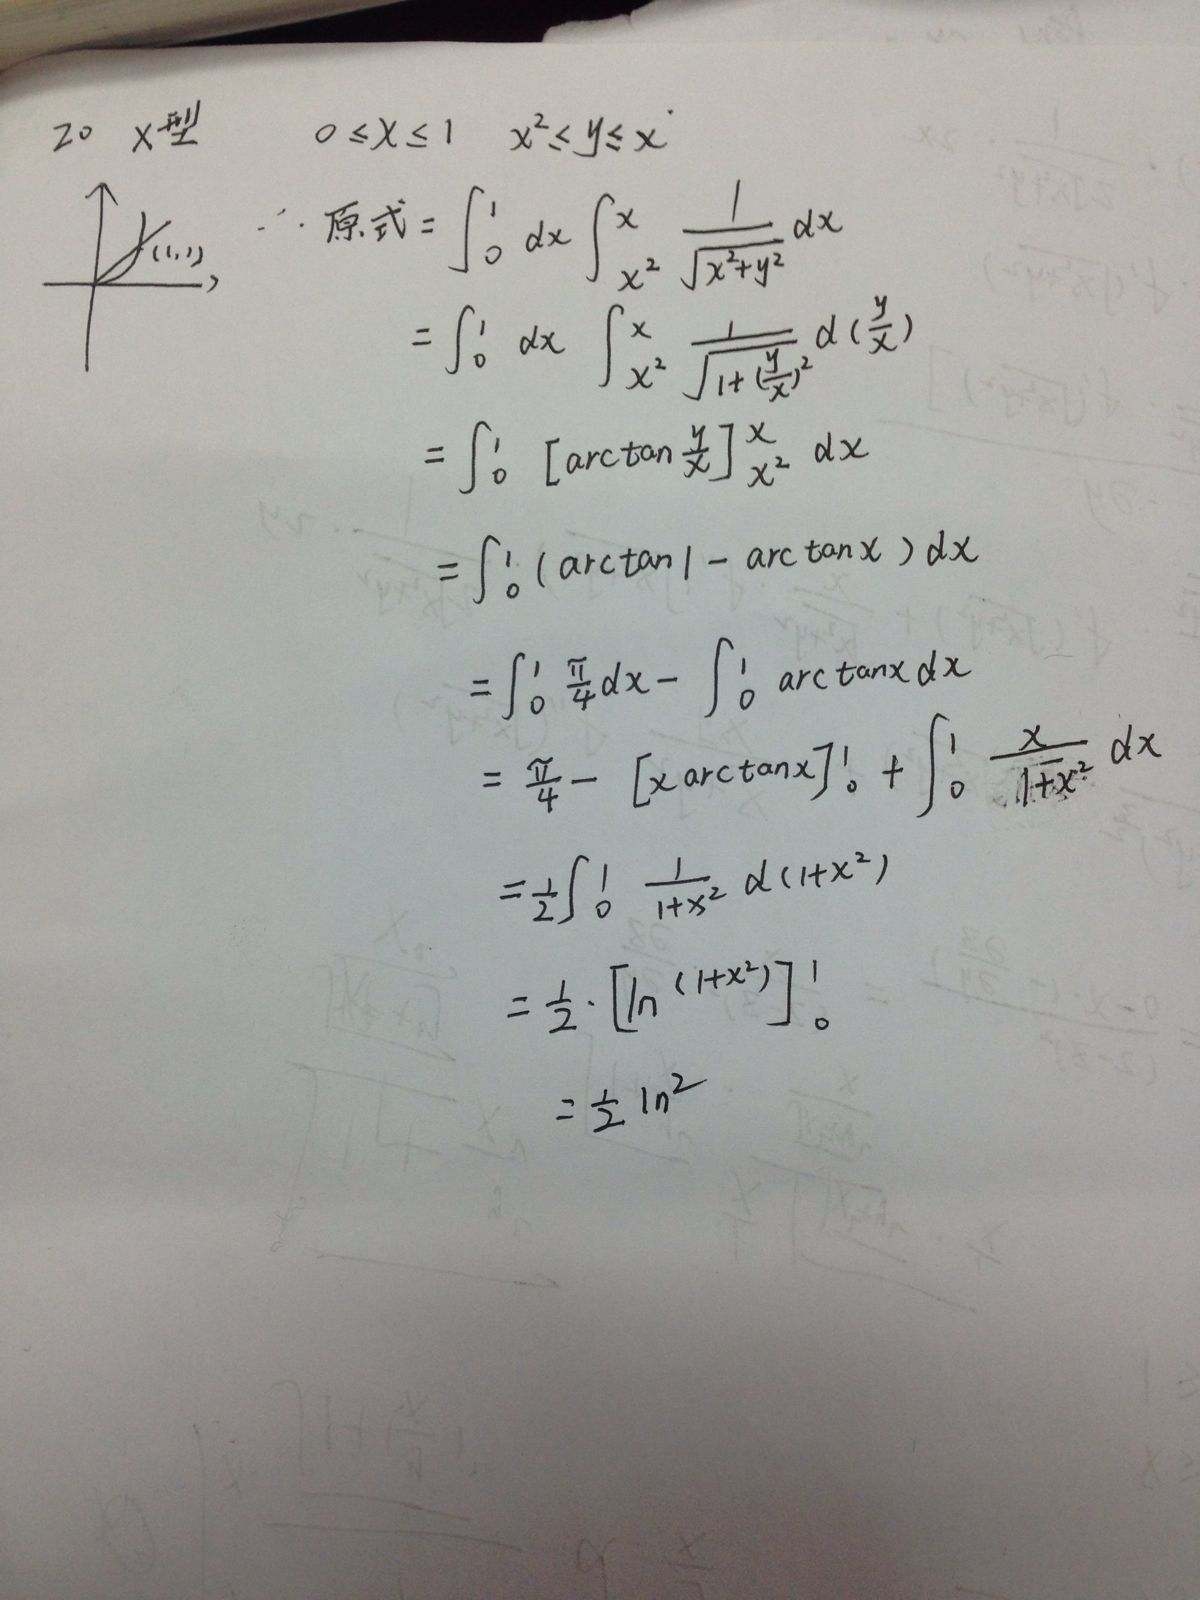 20 X型 0≤x≤1 x²≤y≤x
(1,1)
∴ 原式 = ∫₀¹ dx ∫_{x²}^{x} 1/√(x²+y²) dx
= ∫₀¹ dx ∫_{x²}^{x} 1/√(1+(y/x)²) d(y/x)
= ∫₀¹ [arctan y/x]_{x²}^{x} dx
= ∫₀¹ (arctan1 - arctanx) dx
= ∫₀¹ π/4 dx - ∫₀¹ arctanx dx
= π/4 - [x arctanx]₀¹ + ∫₀¹ x/(1+x²) dx
= 1/2 ∫₀¹ 1/(1+x²) d(1+x²)
= 1/2 · [ln(1+x²)]₀¹
= 1/2 ln2